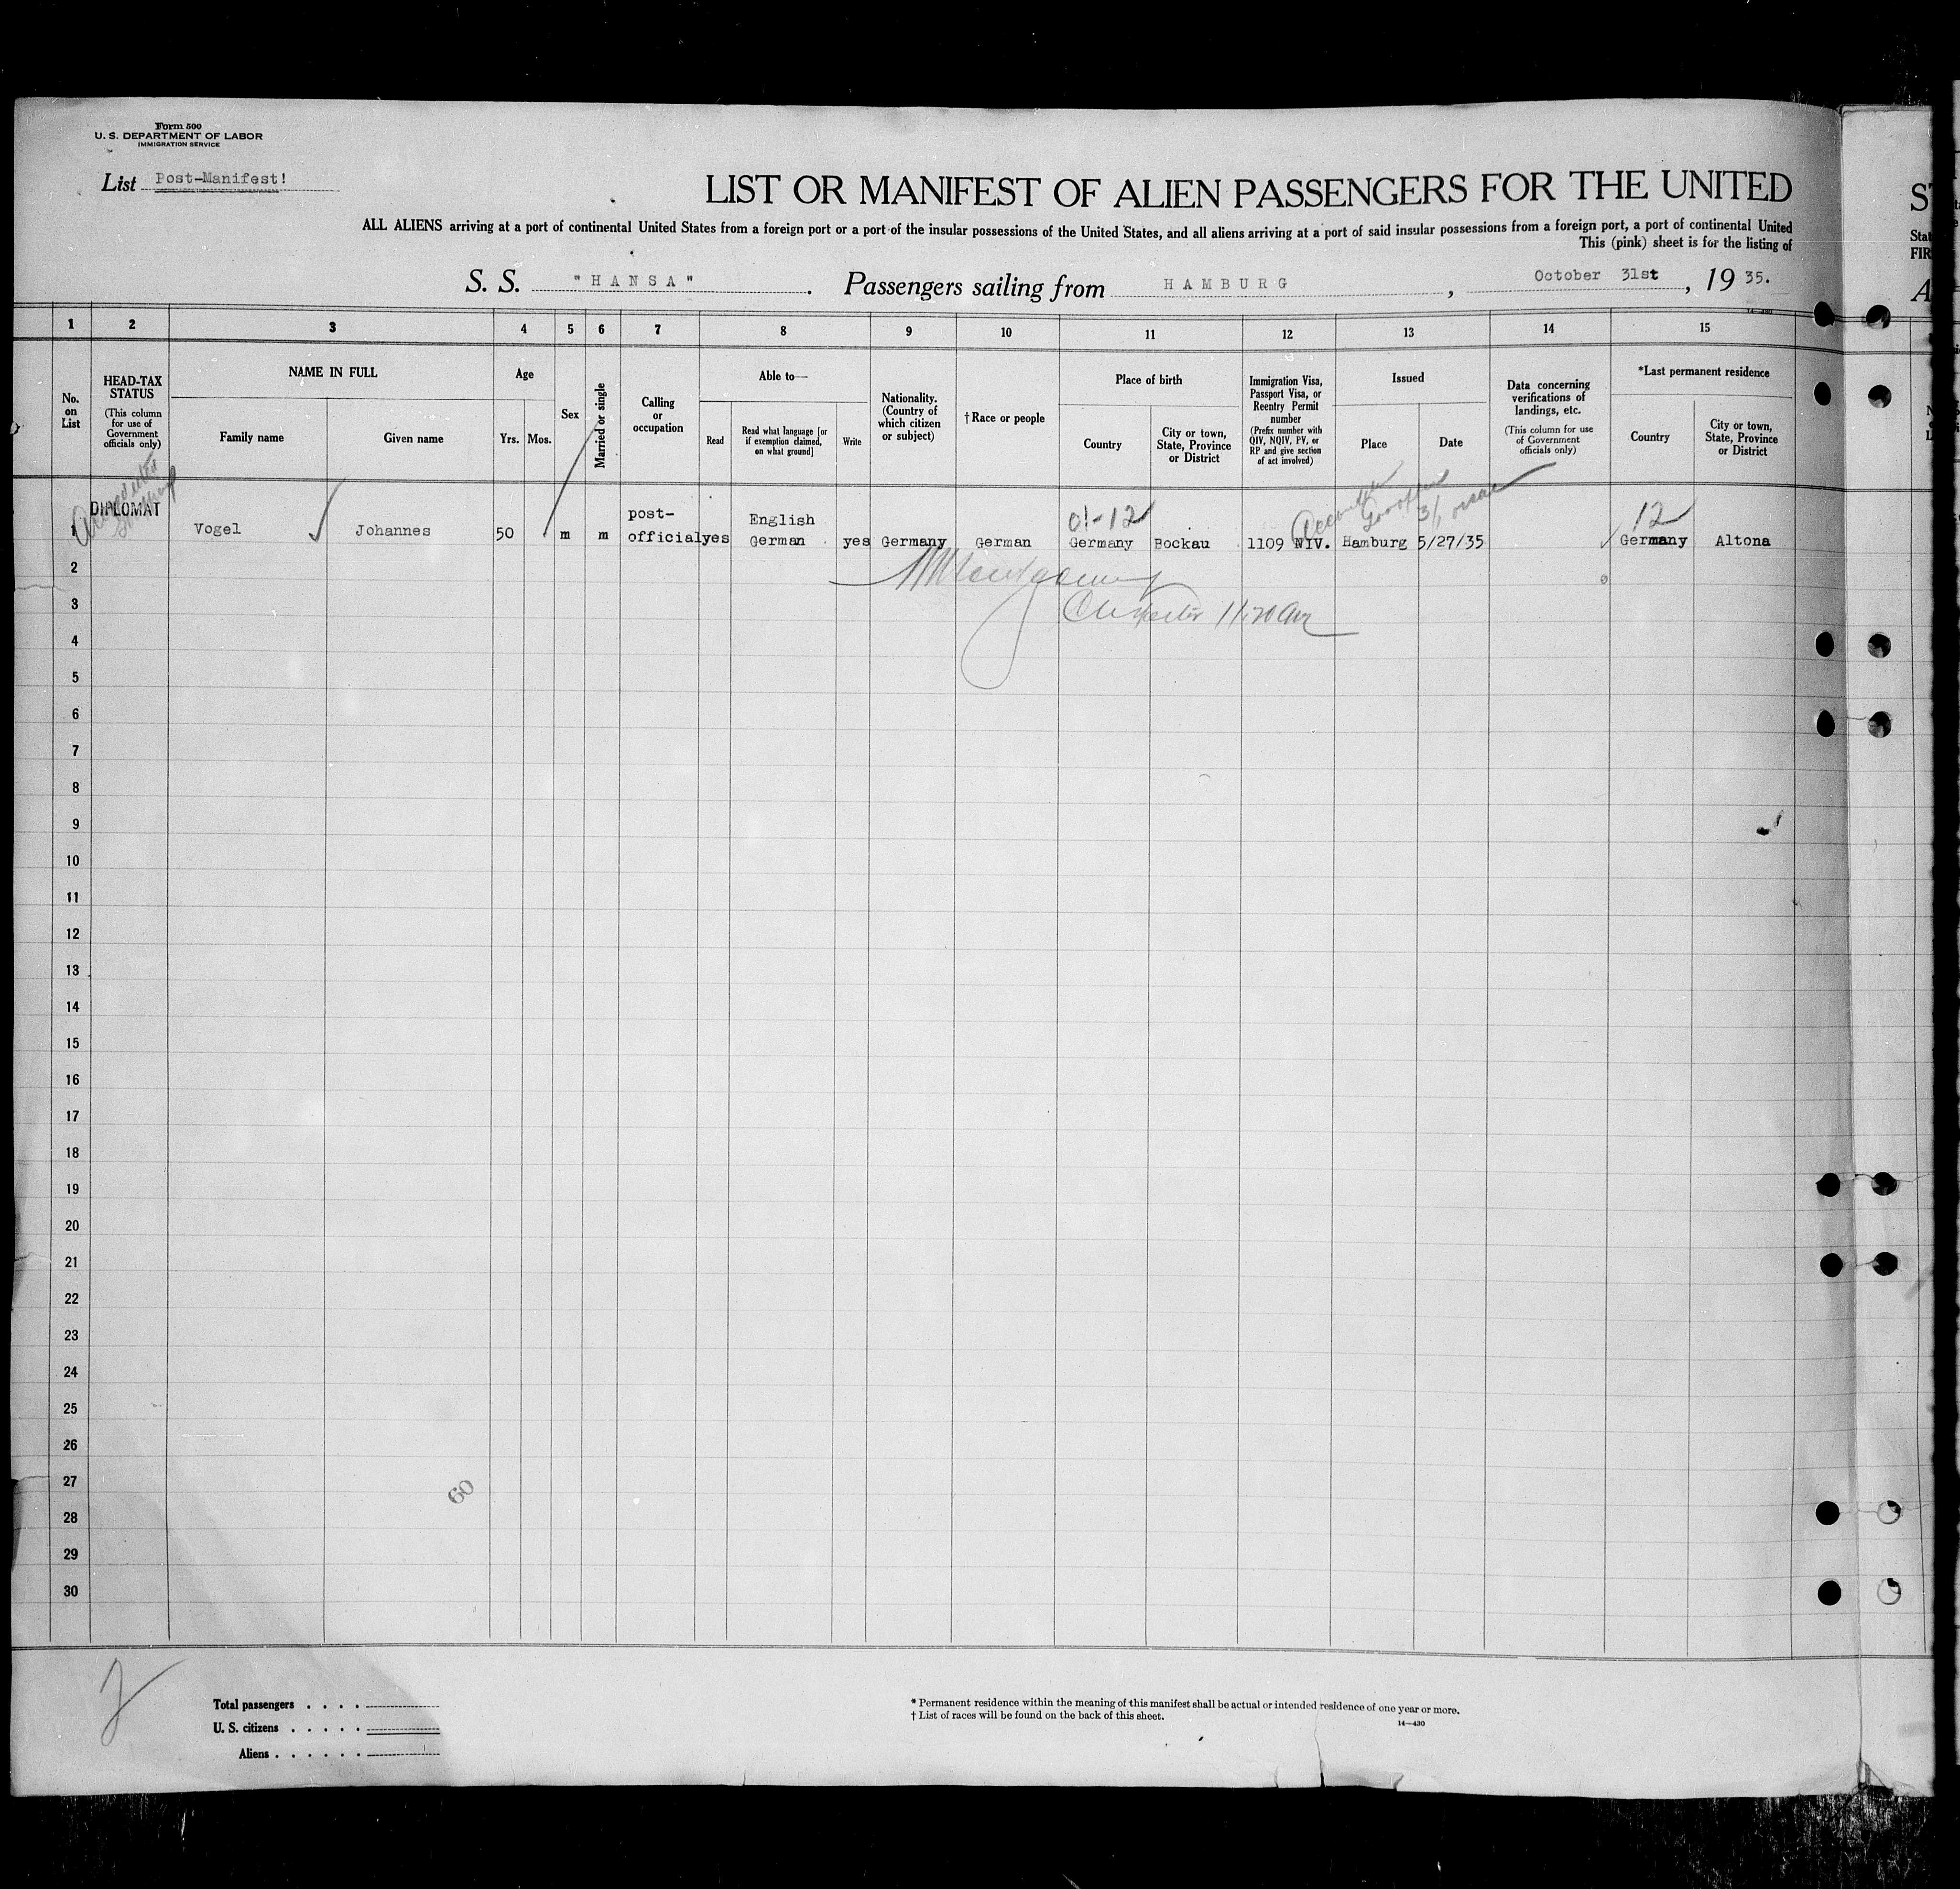 Form 500
U. S. DEPARTMENT OF LABOR
IMMIGRATION SERVICE
List Post-Manifest!
LIST OR MANIFEST OF ALIEN PASSENGERS FOR THE UNITED
ALL ALIENS arriving at a port of continental United States from a foreign port or a port of the insular possessions of the United States, and all aliens arriving at a port of said insular possessions from a foreign port, a port of continental United
This (pink) sheet is for the listing of
S. S. "HANSA". Passengers sailing from HAMBURG, October 31st, 19 35.
1 2 3 4 5 6 7 8 9 10 11 12 13 14 15
No. on List
HEAD-TAX STATUS
(This column for use of Government officials only)
NAME IN FULL
Family name
Given name
Age
Yrs. Mos.
Sex
Married or single
Calling or occupation
Able to—
Read
Read what language [or if exemption claimed, on what ground]
Write
Nationality. (Country of which citizen or subject)
†Race or people
Place of birth
Country
City or town, State, Province or District
Immigration Visa, Passport Visa, or Reentry Permit number
(Prefix number with QIV, NQIV, PV, or RP and give section of act involved)
Issued
Place
Date
Data concerning verifications of landings, etc.
(This column for use of Government officials only)
*Last permanent residence
Country
City or town, State, Province or District
DIPLOMAT
01-12
12
1 Vogel Johannes 50 m m post-official yes English German yes Germany German Germany Bockau 1109 NIV. Hamburg 5/27/35 Germany Altona
11:20 am
2
3
4
5
6
7
8
9
10
11
12
13
14
15
16
17
18
19
20
21
22
23
24
25
26
27
28
29
30
60
Total passengers . . . .
U. S. citizens . . . . .
Aliens . . . . . .
* Permanent residence within the meaning of this manifest shall be actual or intended residence of one year or more.
† List of races will be found on the back of this sheet.
14—430